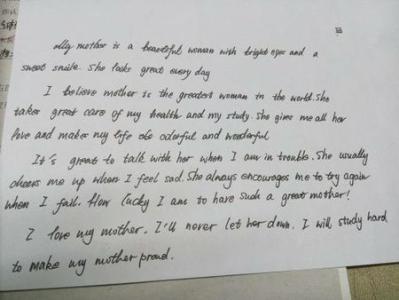 My mother is a beautiful woman with bright eyes and a
sweet smile. She looks great every day
I believe mother is the greatest woman in the world. She
takes great care of my health and my study. She gives me all her
love and makes my life so colorful and wonderful
It's great to talk with her when I am in trouble. She usually
cheers me up when I feel sad. She always encourages me to try again
when I fail. How lucky I am to have such a great mother!
I love my mother. I'll never let her down. I will study hard
to make my mother proud.